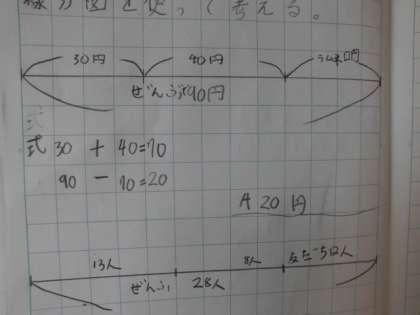 線分図を使って考える。
30円 40円 ラムネ□円
ぜんぶ90円
式
式 30 + 40=70
90 - 70=20
A 20円
13人 8人 友だち□人
ぜんぶ 28人